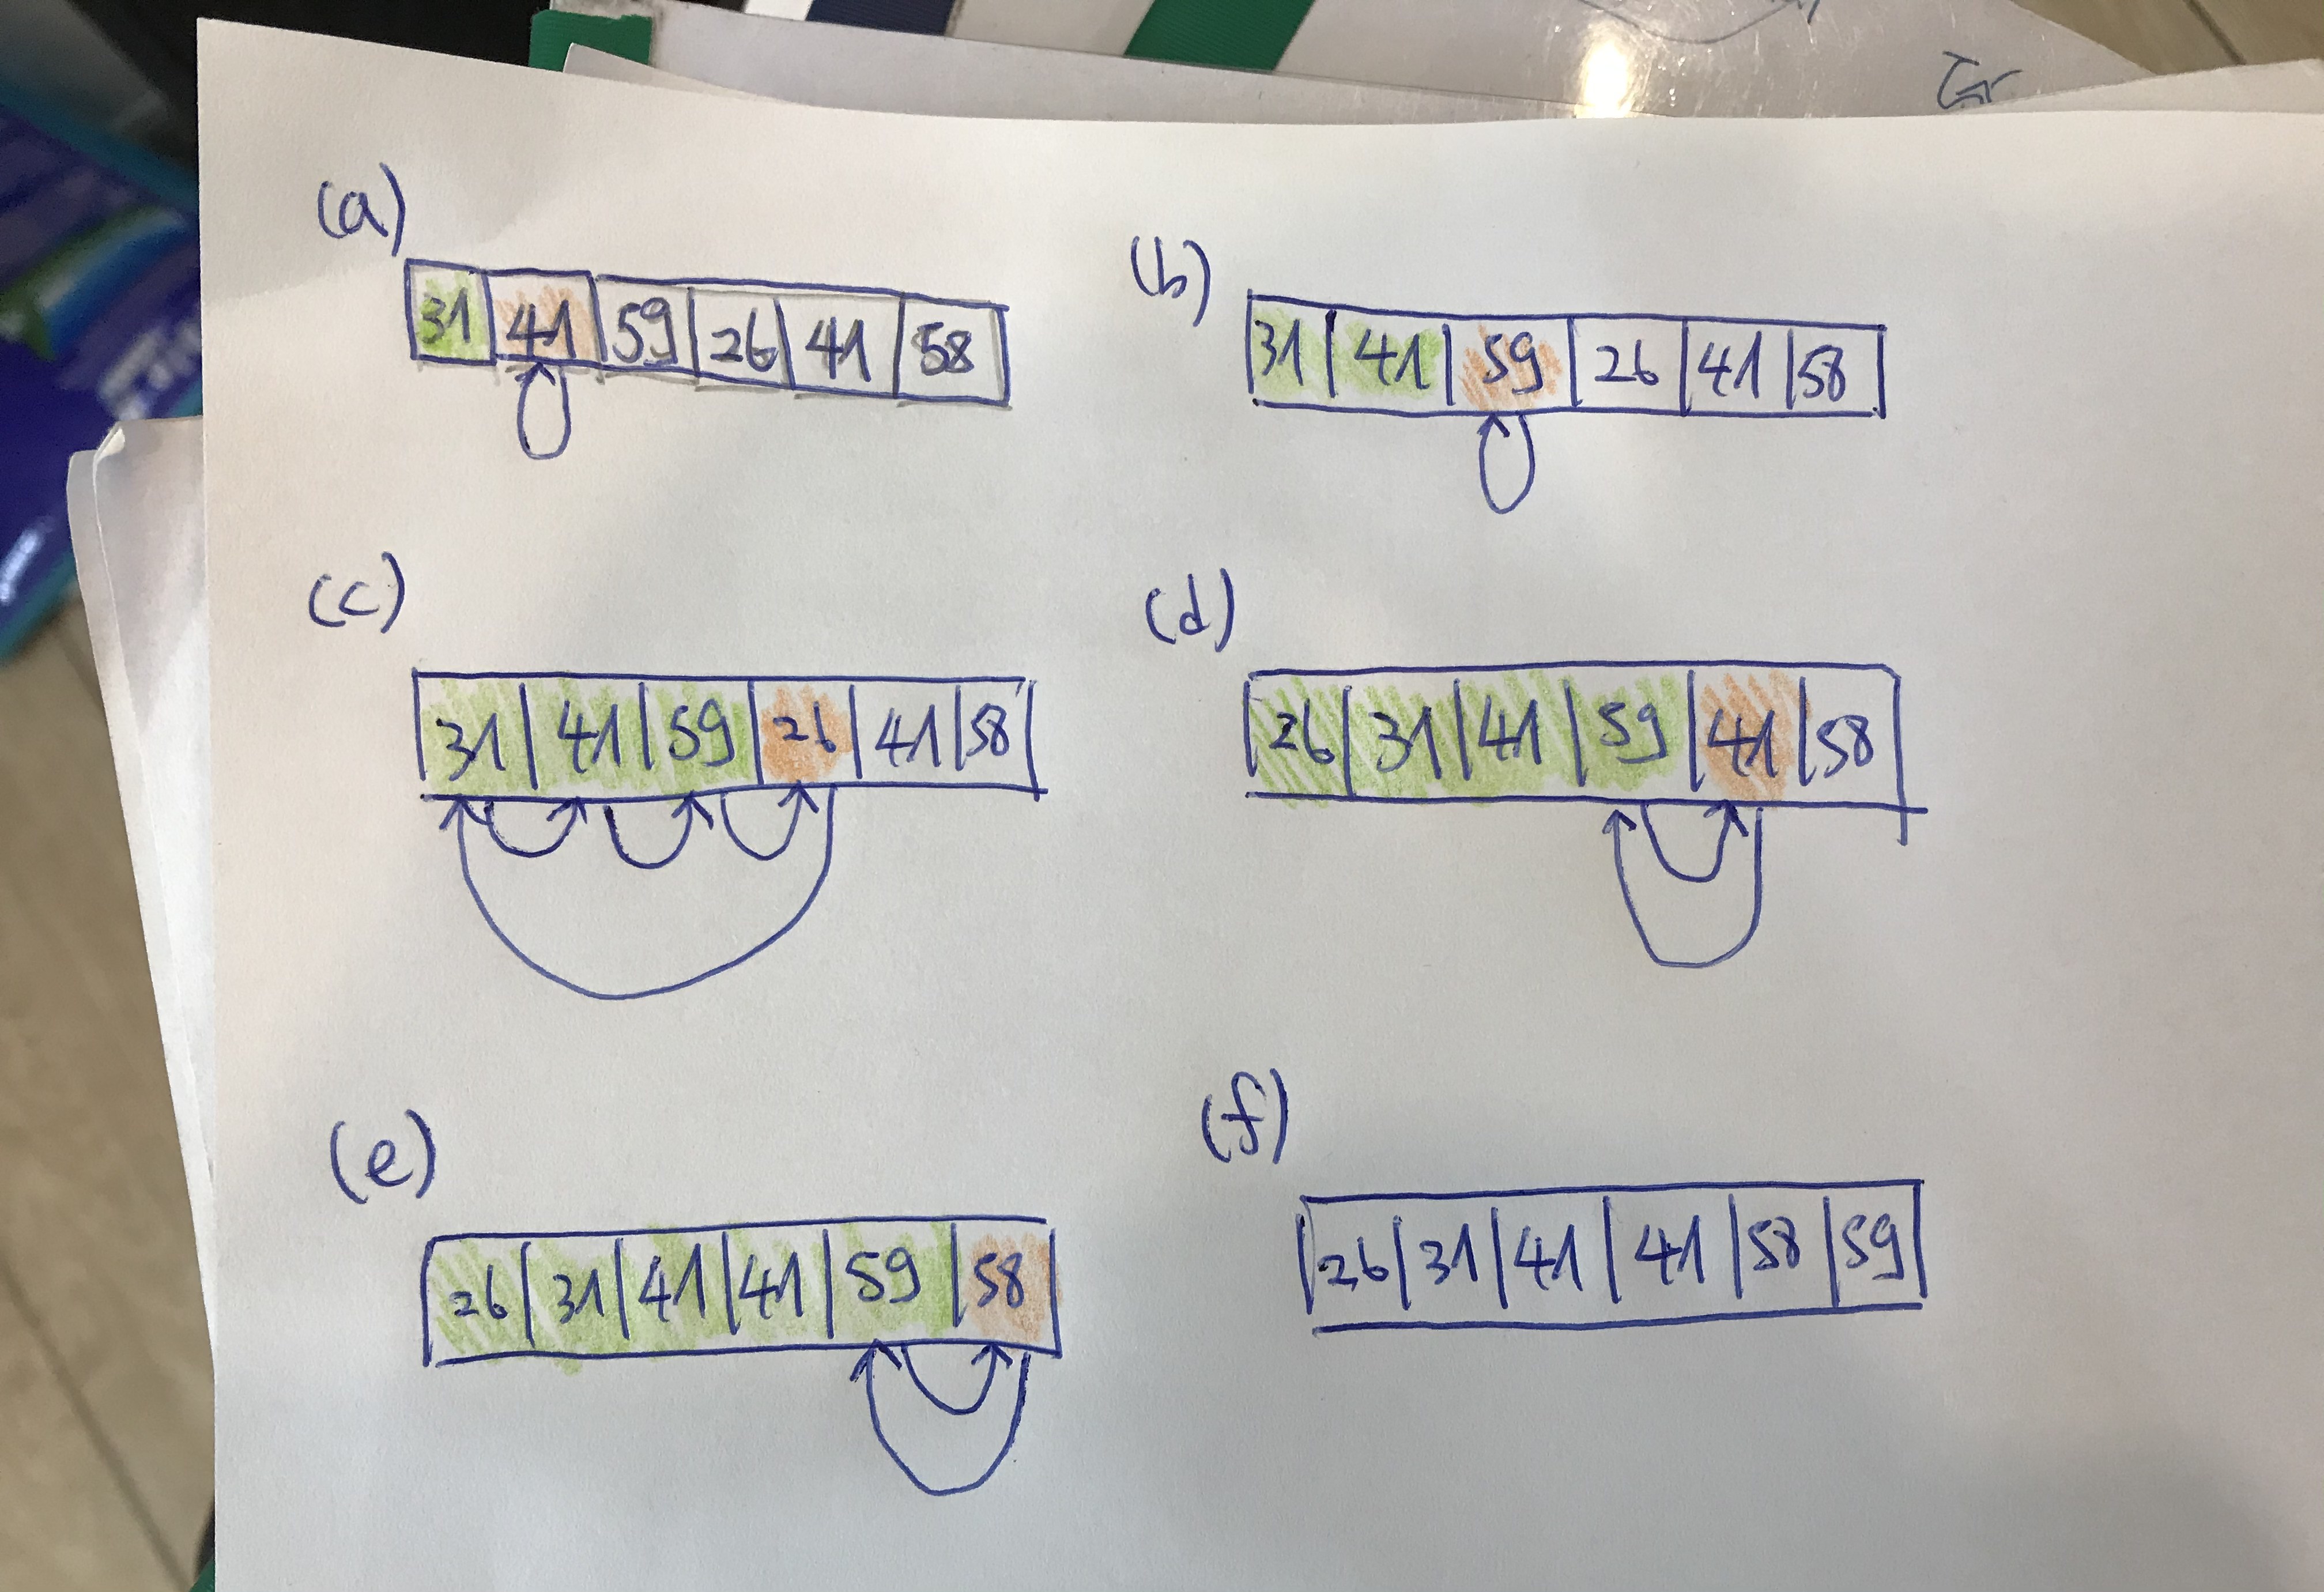 (a)
31 41 59 26 41 58
(b)
31 41 59 26 41 58
(c)
31 41 59 26 41 58
(d)
26 31 41 59 41 58
(e)
26 31 41 41 59 58
(f)
26 31 41 41 58 59